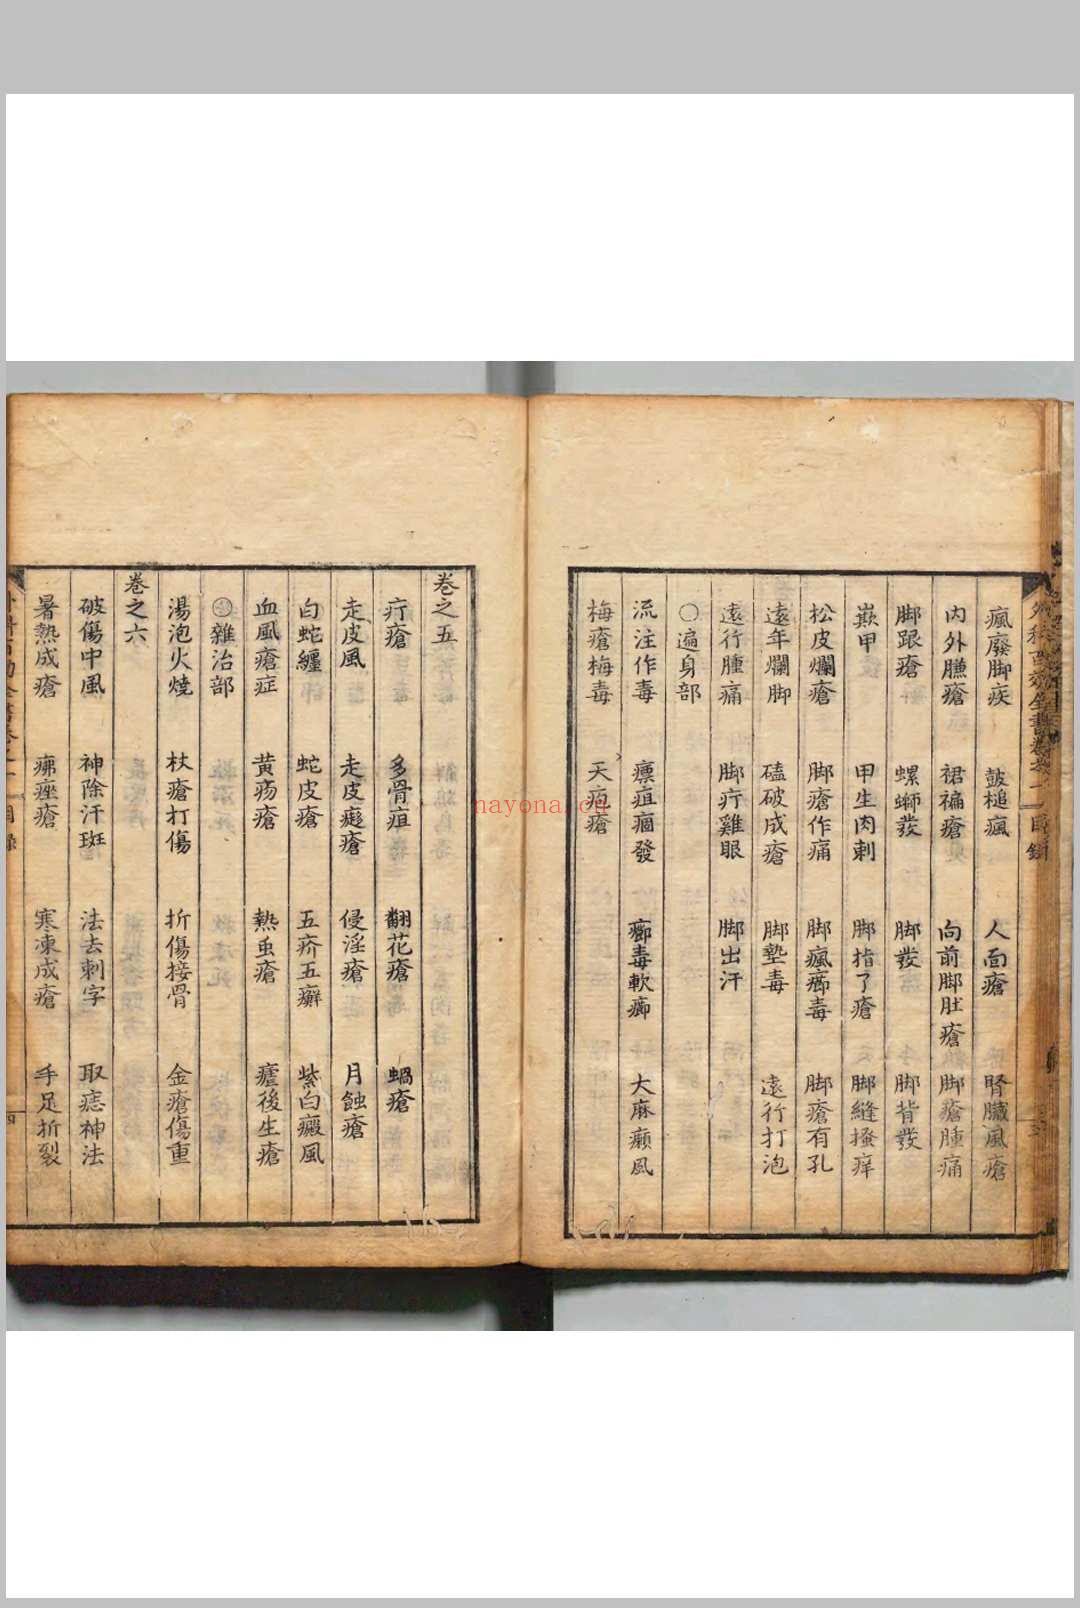 瘋廢脚疾　鼓槌瘋　人面瘡　腎臟風瘡
内外臁瘡　裙褊瘡　向前脚肚瘡　脚瘡腫痛
脚跟瘡　螺螄發　脚發　脚背發
嵌甲　甲生肉刺　脚指丫瘡　脚縫搔痒
松皮爛瘡　脚瘡作痛　脚瘋癤毒　脚瘡有孔
遠年爛脚　磕破成瘡　脚墊毒　遠行打泡
遠行腫痛　脚疔雞眼　脚出汗
〇遍身部
流注作毒　瘭疽痼發　癤毒軟癤　大麻癩風
梅瘡梅毒　天疱瘡
卷之五
疔瘡　多骨疽　翻花瘡　蝸瘡
走皮風　走皮瘲瘡　侵淫瘡　月蝕瘡
白蛇纏　蛇皮瘡　五疥五癬　紫白癜風
血風瘡症　黄疡瘡　熱虫瘡　瘧後生瘡
雜治部
湯泡火燒　杖瘡打傷　折傷接骨　金瘡傷重
卷之六
破傷中風　神除汗斑　法去刺字　取痣神法
暑熱成瘡　痱痤瘡　寒凍成瘡　手足折裂
nayona.cn